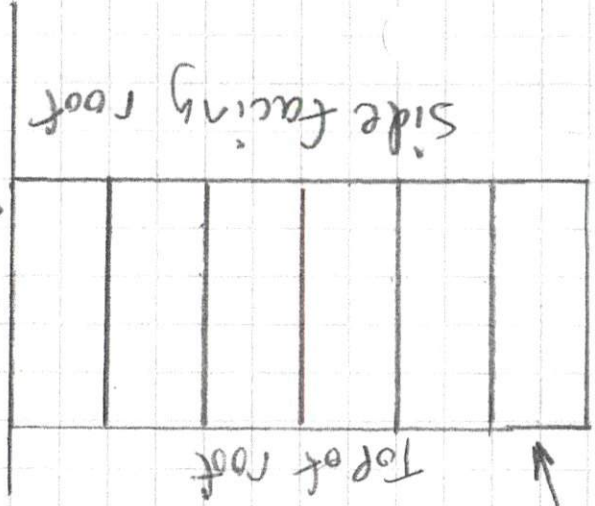 Top of roof
Side facing roof